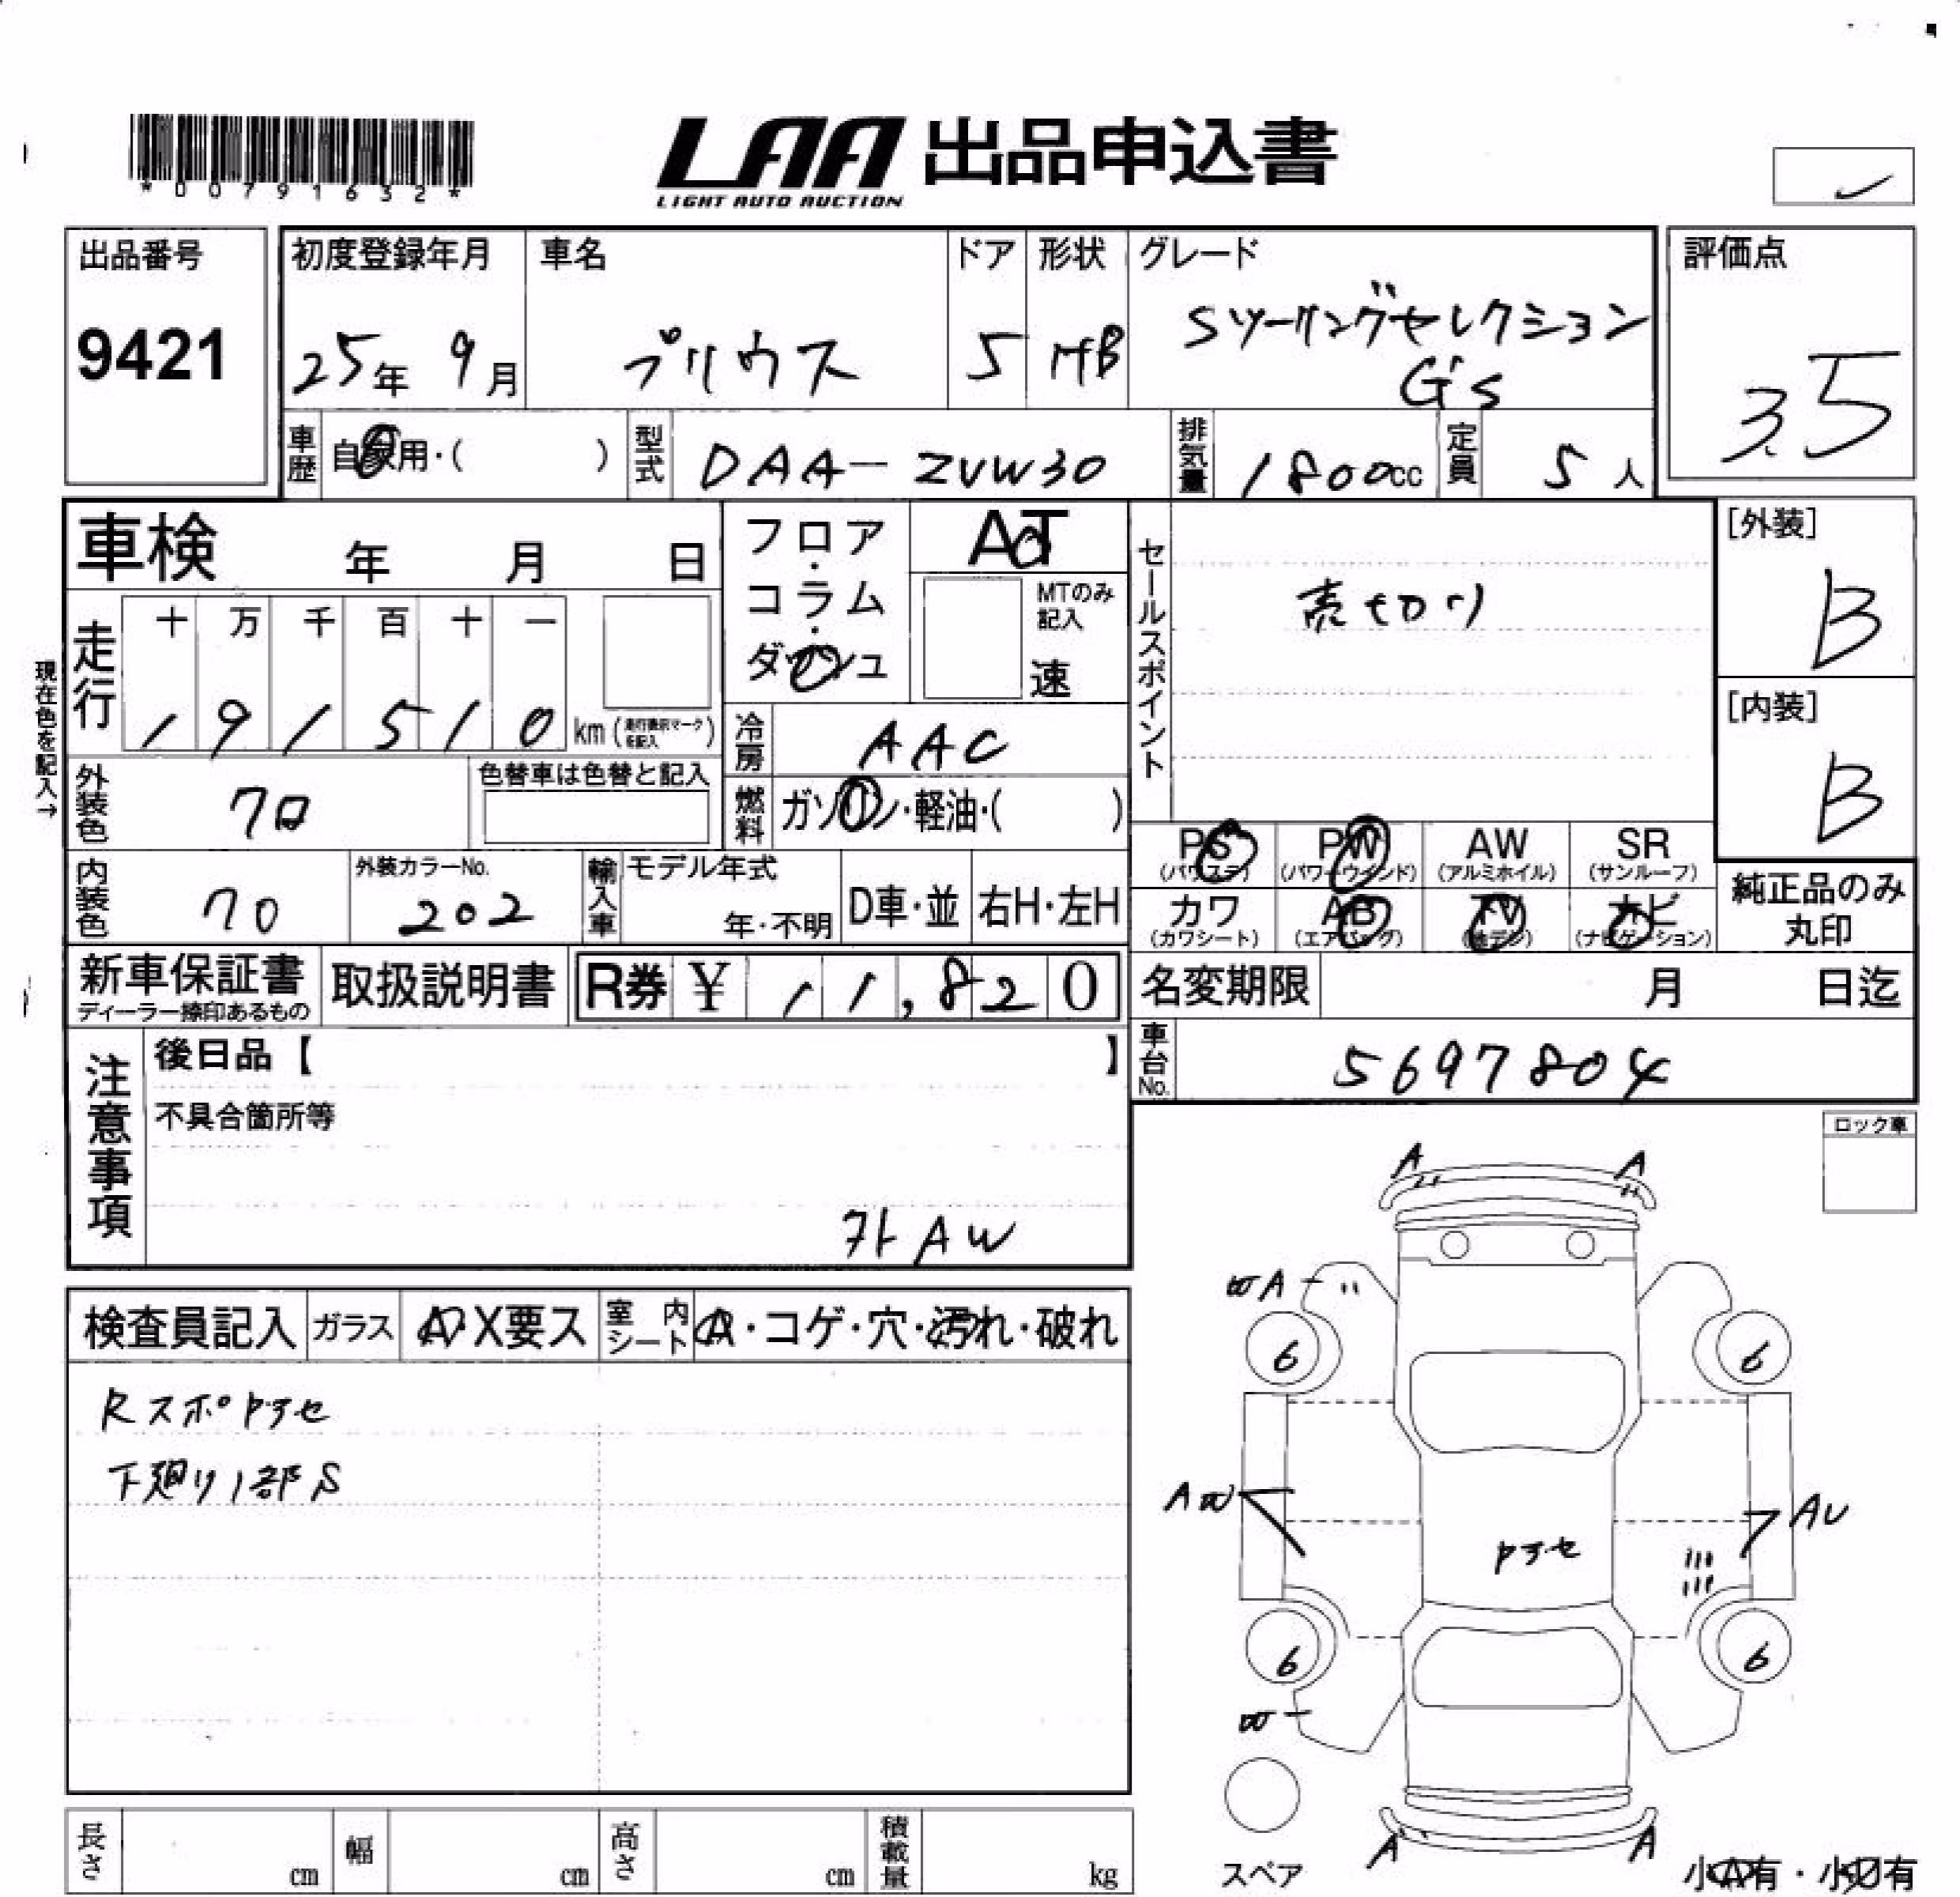 *00791632*
LAA 出品申込書
LIGHT AUTO AUCTION
出品番号
9421
初度登録年月
25年 9月
車名
プリウス
ドア
5
形状
HB
グレード
Sツーリングセレクション
G's
評価点
3.5
車歴
自家用・( )
型式
DAA-ZVW30
排気量
1800cc
定員
5人
車検 年 月 日
フロア・コラム・ダッシュ
AT
MTのみ記入
速
セールスポイント
売切り
[外装]
B
[内装]
B
現在色を記入→
走行
十 万 千 百 十 一
1 9 1 5 1 0 km (走行表示マークを記入)
冷房
AAC
外装色
クロ
色替車は色替と記入
燃料
ガソリン・軽油・( )
PS (パワステ)
PW (パワーウインド)
AW (アルミホイル)
SR (サンルーフ)
カワ (カワシート)
AB (エアバッグ)
TV (地デジ)
ナビ (ナビゲーション)
純正品のみ丸印
内装色
クロ
外装カラーNo.
202
輸入車
モデル年式
年・不明
D車・並
右H・左H
新車保証書
ディーラー捺印あるもの
取扱説明書
R券 ¥ 11,820
名変期限 月 日迄
車台No.
5697804
注意事項
後日品【 】
不具合箇所等
外AW
ロック車
検査員記入
ガラス
A・X要ス
室内シート
A・コゲ・穴・汚れ・破れ
Rスポ トアセ
下廻り1部S
A A
A
6 6
A
AU
トアセ
6 6
A A
スペア
長さ cm
幅 cm
高さ cm
積載量 kg
小A有・小U有